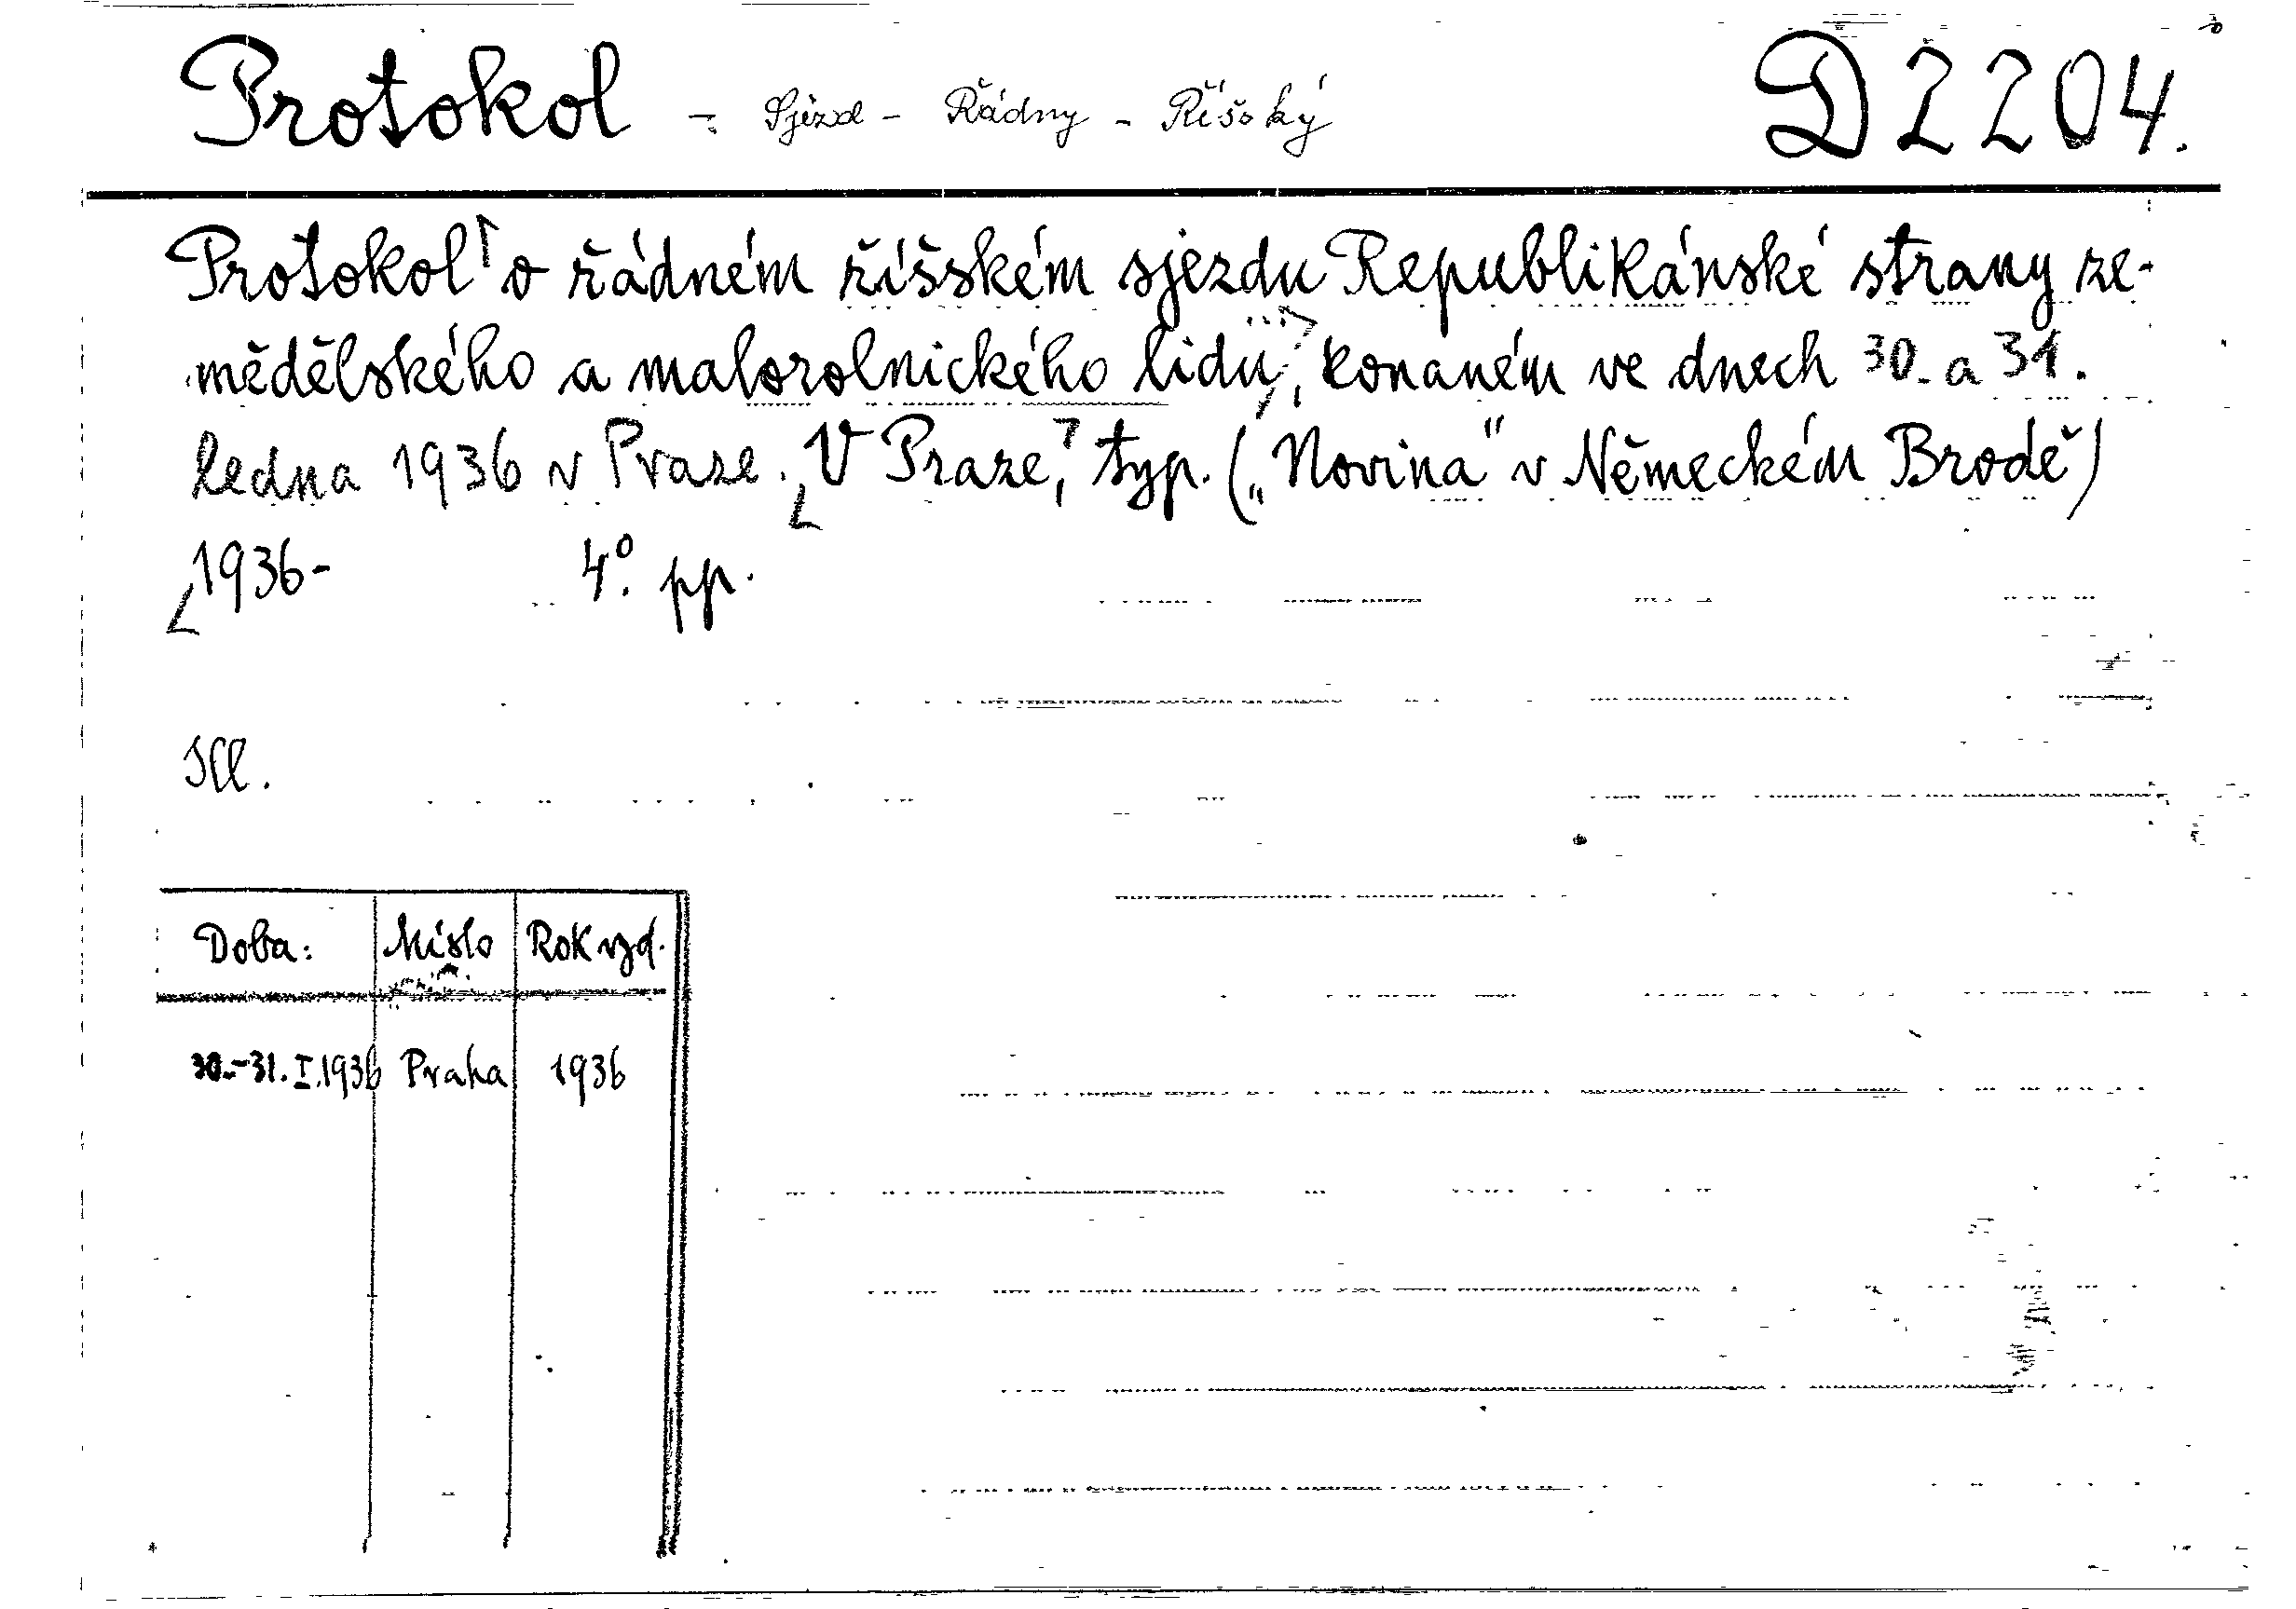 Protokol - Sjezd - Řádny - Říšský D 2204.
Protokol o řádném říšském sjezdu Republikánské strany ze-
mědělského a malorolnického lidu, konaném ve dnech 30. a 31.
ledna 1936 v Praze. V Praze, typ. („Novina" v Německém Brodě)
1936- 4°. pp.
Ill.
Doba: Místo Rok vyd.
30.-31. I. 1936 Praha 1936